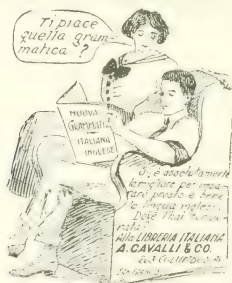 Ti piace
quella gram-
matica ?
NUOVA
GRAMMATICA
ITALIANA
INGLESE
Sì, è assolutamente
la migliore per impa-
rare presto e bene
la lingua
Dove l'hai
Alla LIBRERIA ITALIANA
A. CAVALLI & CO.